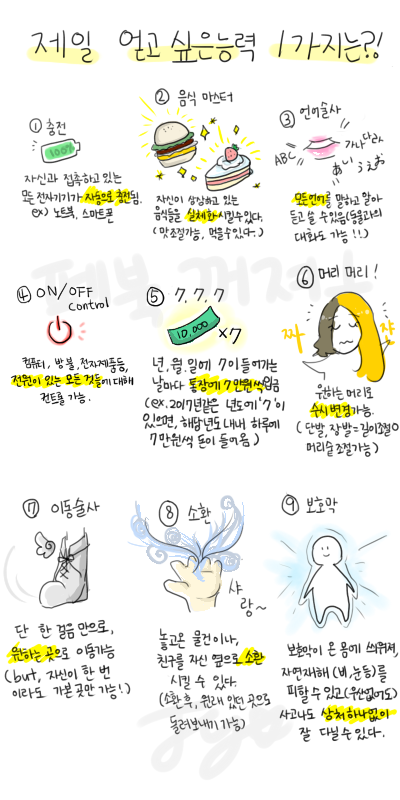 제일 얻고 싶은능력 1가지는?!
① 충전
100%
자신과 접촉하고 있는
모든 전자기기가 자동으로 충전됨.
ex) 노트북, 스마트폰
② 음식 마스터
자신이 상상하고 있는
음식들을 실체화 시킬 수 있다.
(맛 조절가능, 먹을 수 있다.)
③ 언어술사
ABC
가나다라
あぃうえお
모든언어를 말하고 알아
듣고 쓸 수 있음(동물과의
대화도 가능!!)
④ ON/OFF
control
컴퓨터, 방 불, 전자제품등,
전원이 있는 모든 것들에 대해
컨트롤 가능.
⑤ 7, 7, 7
10,000 ×7
년, 월, 일에 7이 들어가는
날마다 통장에 7만원씩 입금
(ex. 2017년같은 년도에 '7'이
있으면, 해당년도 내내 하루에
7만원씩 돈이 들어옴)
⑥ 머리 머리!
짜 쟌
원하는 머리로
수시변경가능.
(단발, 장발 = 길이조절O
머리숱 조절가능)
⑦ 이동술사
단 한 걸음 만으로,
원하는 곳으로 이동가능
(but, 자신이 한 번
이라도 가본곳만 가능!)
⑧ 소환
샤
랑~
놓고온 물건이나,
친구를 자신 옆으로 소환
시킬 수 있다.
(소환 후, 원래 있던 곳으로
돌려보내기 가능)
⑨ 보호막
보호막이 온 몸에 씌워져,
자연재해 (비, 눈등)를
피할 수 있고(우산없어도)
사고나도 상처하나없이
잘 다닐 수 있다.